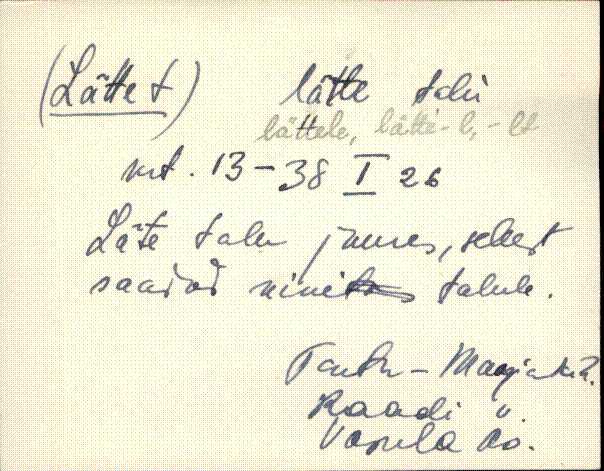 (Lätte t) lätte talu
lättele, lätte-l, -lt
vrt. 13-38 I 26
Läte talu juures, sellest
saadud nimi talule.
Tartu-Maarja kih.
Raadi v.
Vasula as.